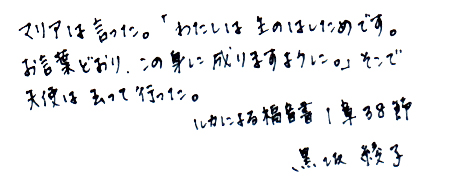 マリアは言った。「わたしは主のはしためです。
お言葉どおり、この身に成りますように。」そこで
天使は去って行った。
ルカによる福音書1章38節
黒坂 綾子